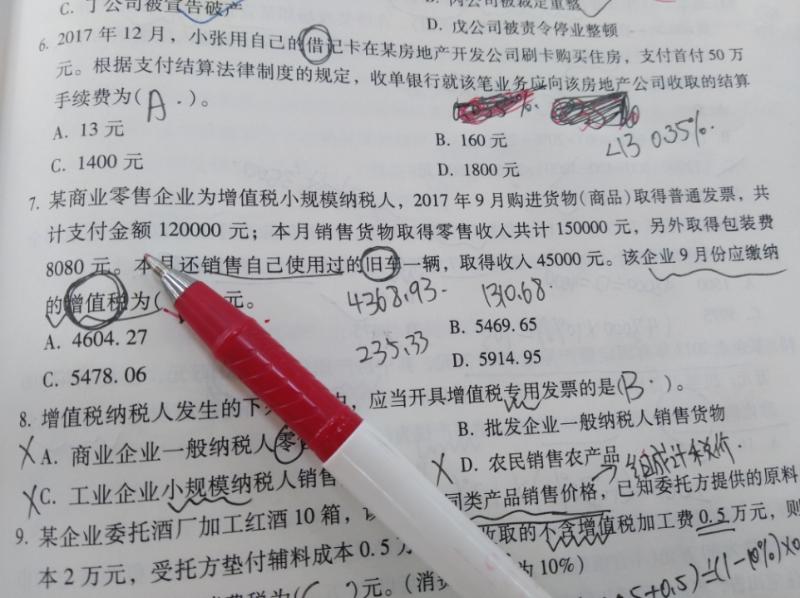 C. 丁公司被宣告破产
D. 戊公司被责令停业整顿
6. 2017 年 12 月，小张用自己的借记卡在某房地产开发公司刷卡购买住房，支付首付 50 万
元。根据支付结算法律制度的规定，收单银行就该笔业务应向该房地产公司收取的结算
手续费为( A . )。
A. 13 元
B. 160 元
<13 0.35%.
C. 1400 元
D. 1800 元
7. 某商业零售企业为增值税小规模纳税人，2017 年 9 月购进货物(商品)取得普通发票，共
计支付金额 120000 元；本月销售货物取得零售收入共计 150000 元，另外取得包装费
8080 元。本月还销售自己使用过的旧车一辆，取得收入 45000 元。该企业 9 月份应缴纳
的增值税为( 元。
4368.93 1310.68
A. 4604.27
B. 5469.65
235.33
C. 5478.06
D. 5914.95
8. 增值税纳税人发生的下 中，应当开具增值税专用发票的是( B . )。
X A. 商业企业一般纳税人零
B. 批发企业一般纳税人销售货物
X C. 工业企业小规模纳税人销售
X D. 农民销售农产品
9. 某企业委托酒厂加工红酒 10 箱， 同类产品销售价格，已知委托方提供的原料
本 2 万元，受托方垫付辅料成本 0.5 万 收取的不含增值税加工费 0.5 万元，则
费税为( )元。(消 为 10%)
0.5+0.5)÷(1-10%)×